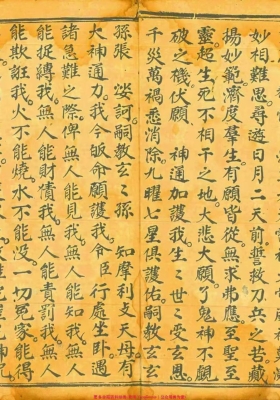 妙相難思尋遊日月二天前誓救刀兵之苦
揚妙範濟度羣生有願皆從無求弗應至聖至
靈超生死不相干之地大悲大願了鬼神不覷
破之機伏願 神通加護我生々世々受玄恩
千災萬禍悉消除九曜七星俱護佑嗣教玄玄
孫張 訶嗣教玄々孫 知摩利支天母有
大神通力我今皈命願護我令臣行處坐卧過
諸急難之際俾無人能見我無人能知我無人
能捉縛我無人能財債我無人能責罰我無人
能欺誑我火不能燒水不能没一切冤家能得